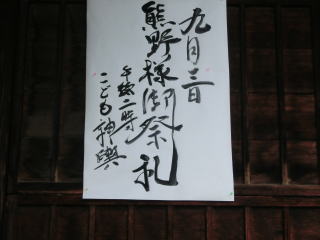 九月三日
熊野様御祭礼
午後二時
こども神輿